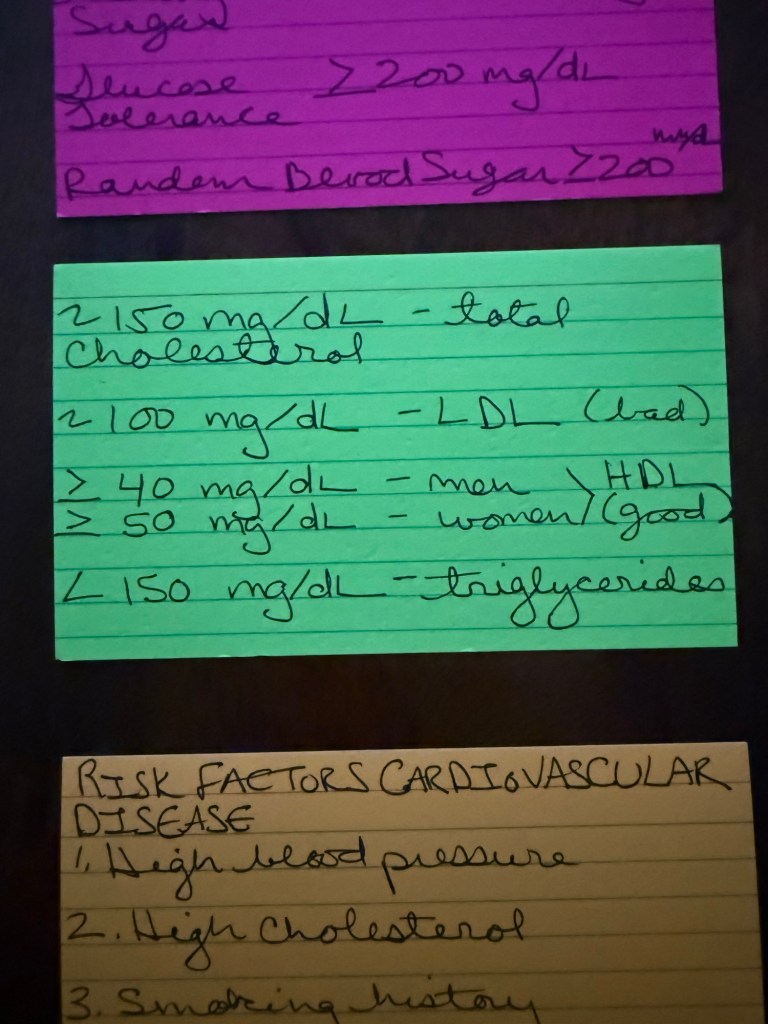 Sugar
Glucose ≥200 mg/dL
Tolerance
mg/d
Random Blood Sugar ≥200
~150 mg/dL - total
Cholesterol
~100 mg/dL - LDL (bad)
≥ 40 mg/dL - men > HDL
≥ 50 mg/dL - women (good)
< 150 mg/dL - triglycerides
RISK FACTORS CARDIOVASCULAR
DISEASE
1. High blood pressure
2. High Cholesterol
3. Smoking history